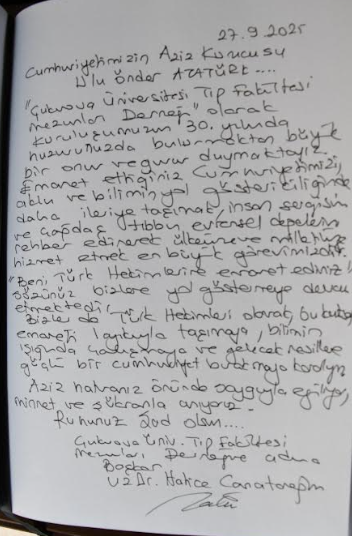 27.9.2025
Cumhuriyetimizin Aziz Kurucusu
Ulu Önder ATATÜRK....
"Çukurova Üniversitesi Tıp Fakültesi
Mezunları Derneği" olarak
Kuruluşumuzun 30. yılında
huzurunuzda bulunmaktan büyük
bir onur ve gurur duymaktayız.
Emanet ettiğiniz Cumhuriyetimizi,
aklın ve bilimin yol göstericiliğinde
daha ileriye taşımak, insan sevgisini
ve çağdaş tıbbın evrensel değerlerini
rehber edinerek ülkemize ve milletimize
hizmet etmek en büyük görevimizdir.
"Beni Türk Hekimlerine emanet ediniz"
sözünüz bizlere yol göstermeye devam
etmektedir.
Bizler de Türk Hekimleri olarak, bu kutsal
emaneti layıkıyla taşımaya, bilimin
ışığında çalışmaya ve gelecek nesillere
güçlü bir cumhuriyet bırakmaya kararlıyız.
Aziz hatıranız önünde saygıyla eğiliyor,
minnet ve şükranla anıyoruz.
Ruhunuz Şad olsun....
Çukurova Üniv. Tıp Fakültesi
Mezunları Derneği adına
Başkan
Uz Dr. Hatice